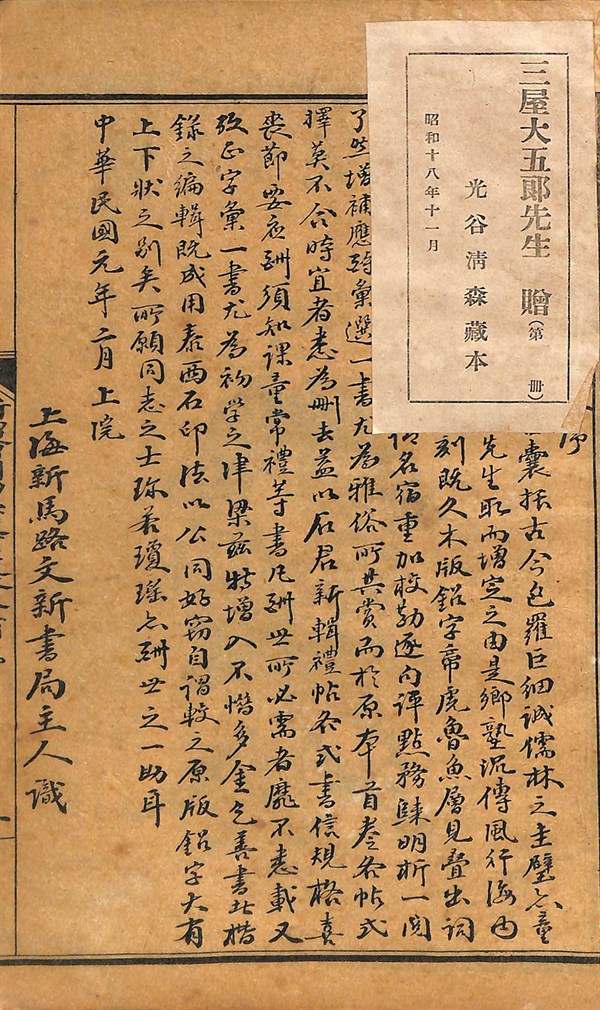 三屋大五郎先生 贈(第 冊)
光谷清森藏本
昭和十八年十一月
序
囊括古今包羅巨細誠儒林之圭璧亦童
先生取而增定之由是鄉塾流傳風行海內
刻既久木版鉛字帝虎魯魚層見疊出詞
名宿重加校勘逐句評點務臻明晰一閱
了然增補應酬彙選一書尤為雅俗所共賞而於原本首卷各帖式
擇其不合時宜者悉為刪去益以石君新輯禮帖各式書信規格喜
喪節要應酬須知課童常禮等書凡酬世所必需者靡不悉載又
改正字彙一書尤為初學之津梁茲特增入不惜多金乞善書者楷
錄之編輯既成用泰西石印法以公同好竊自謂較之原版鉛字大有
上下牀之別矣所願同志之士珍若瓊瑤亦酬世之一助耳
中華民國元年二月上浣
上海新馬路文新書局主人識